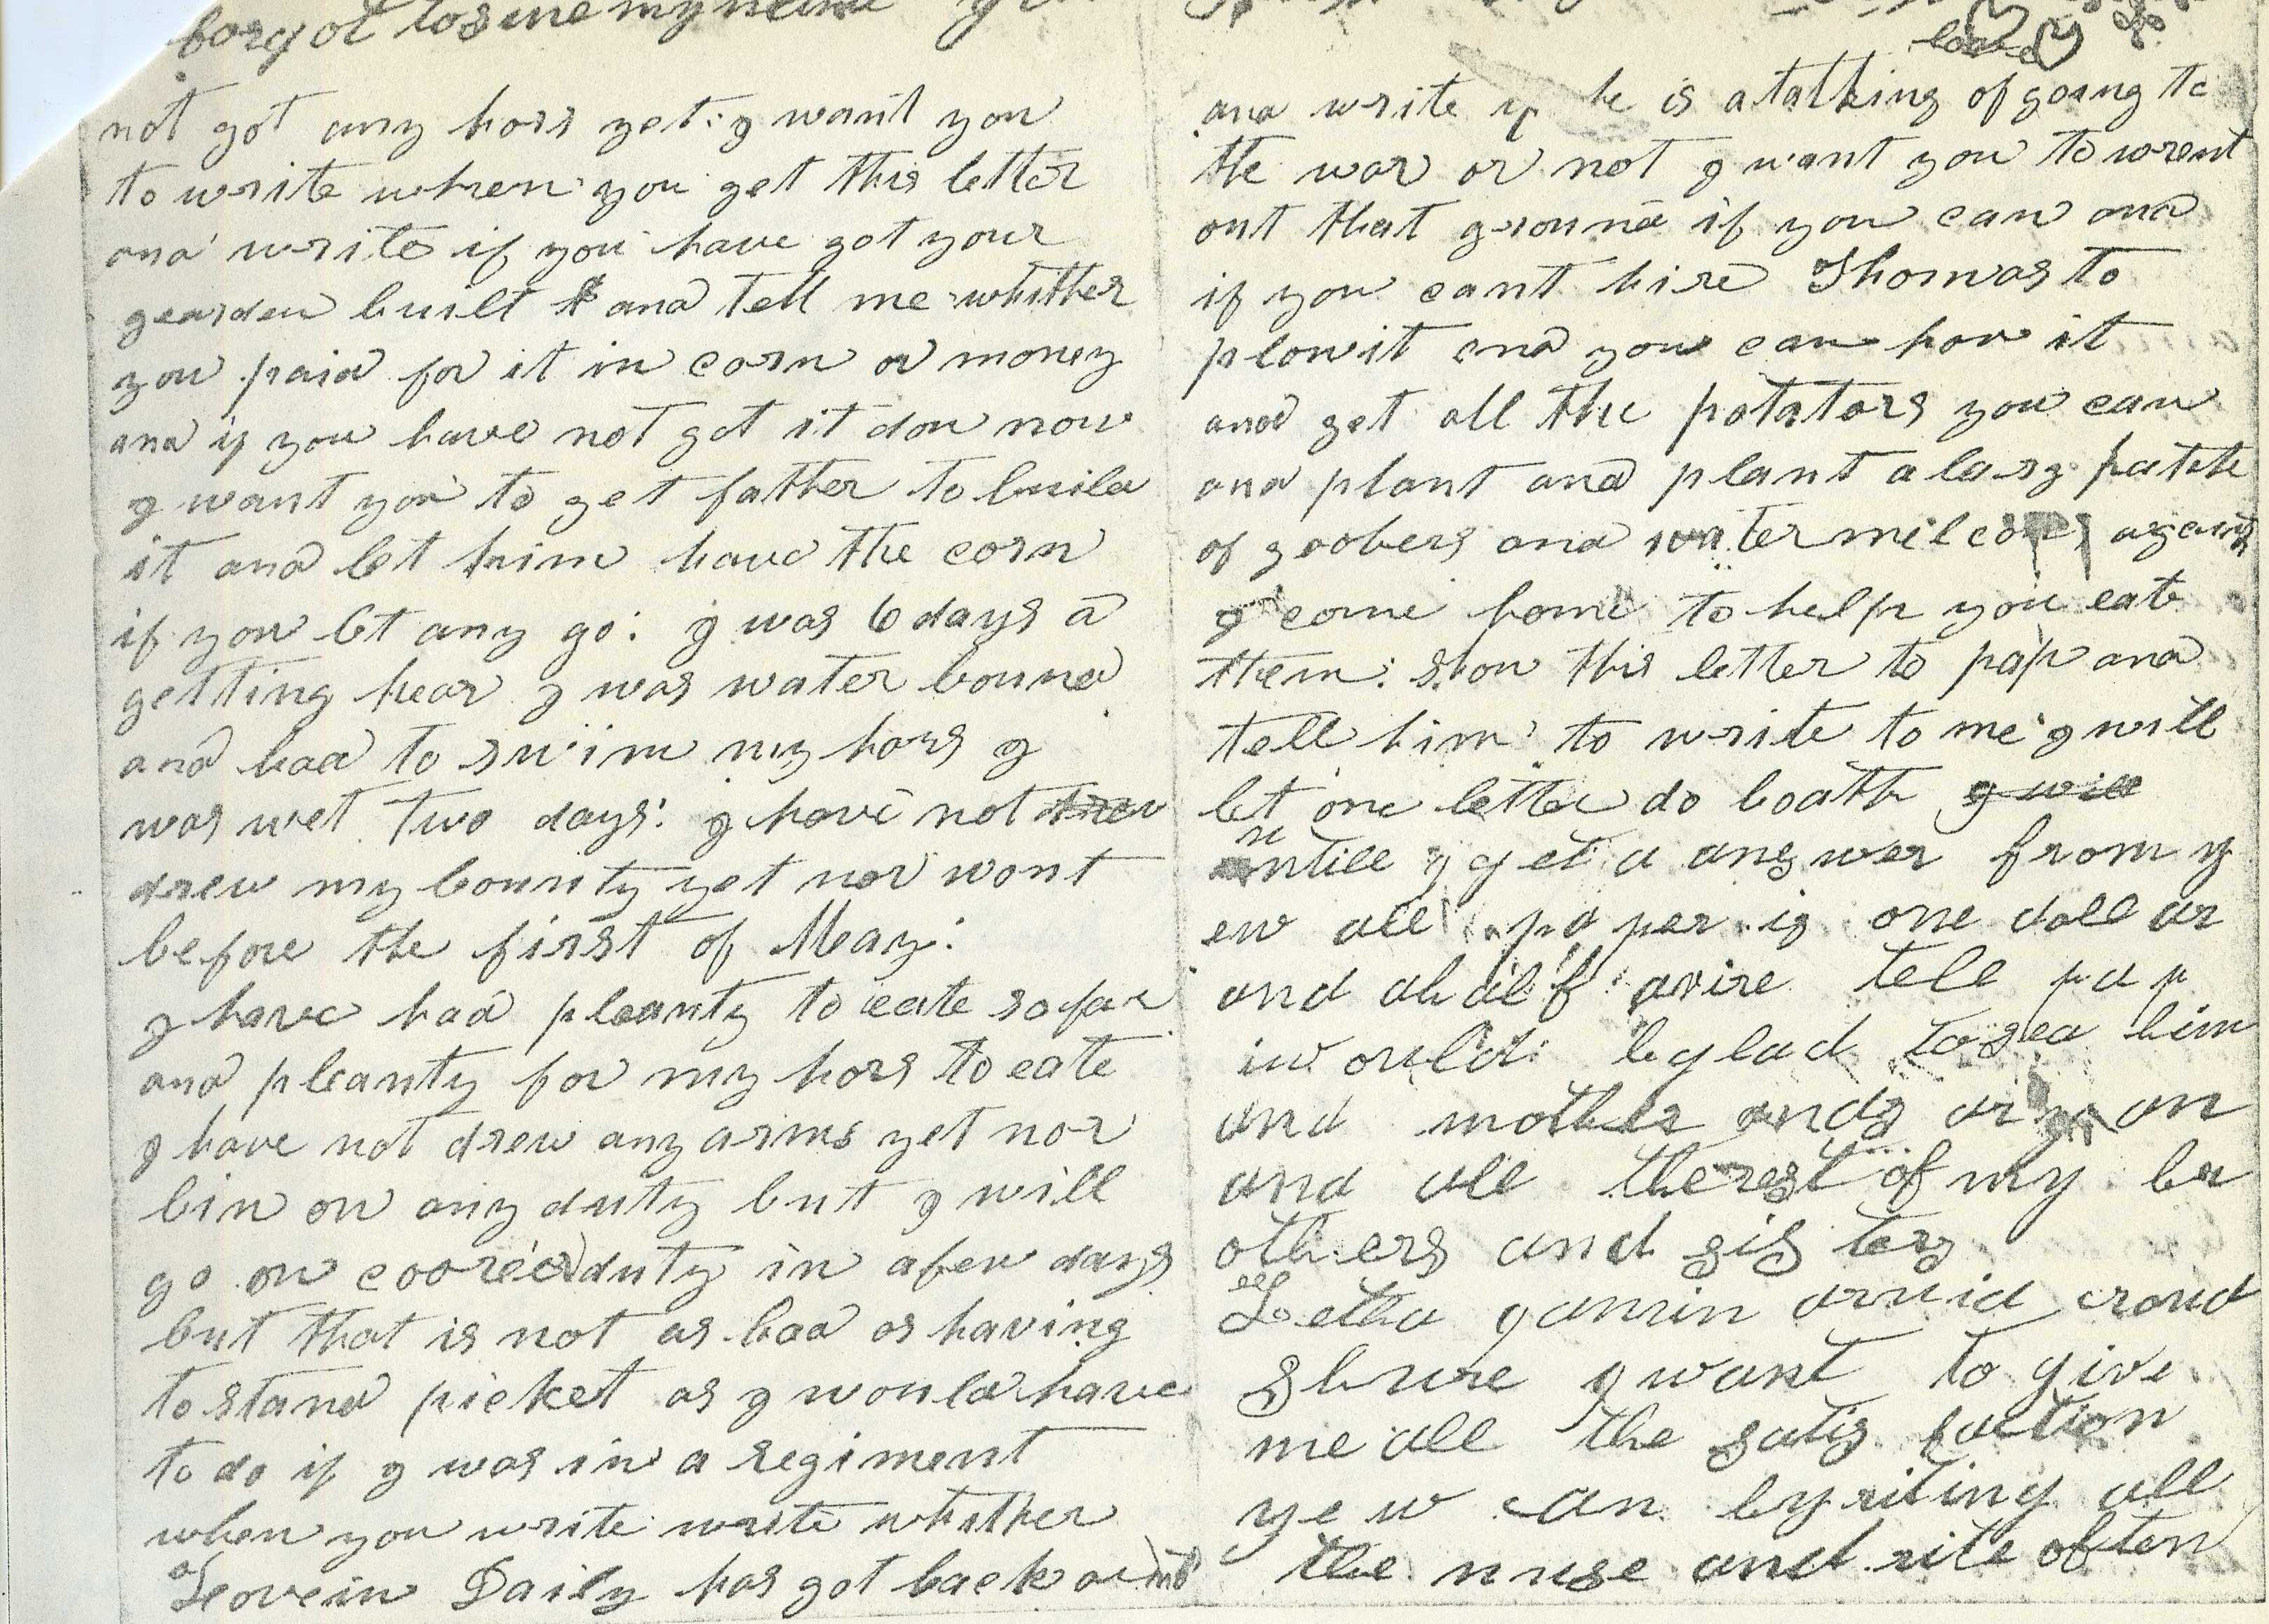 forgot to sine my name
not got any hors yet: I want you
to write when you get this letter
and write if you have got your
gearden built and tell me whither
you paid for it in corn or money
and if you have not got it don now
I want you to get father to build
it and let him have the corn
if you let any go: I was 6 days a
getting hear I was water bound
and had to swim my hors I
was wet two days: I have not drew
drew my bounty yet nor wont
before the first of May:
I have had pleanty to eate so far
and pleanty for my hors to eate
I have not drew any arms yet nor
bin on any duty but I will
go on duty in a few days
but that is not as bad as having
to stand picket as I would have
to do if I was in a regiment
when you write write whither
Daily has got back or not
and write if he is a talking of going to
the war or not I want you to wrent
out that ground if you can and
if you cant hire Thomas to
plow it and you can how it
and get all the potators you can
and plant and plant a larg patch
of goobers and water milions against
I come home to help you eate
them: show this letter to pap and
tell him to write to me I will
let one letter do boath I will
untill I get a answer from y
ew all paper is one dollar
and a half qire tell pap
i would b glad to sea him
and mother and
and all the rest of my br
others and sisters
I want to give
me all the satis faction
yew can by riting all
the nuse and rite often